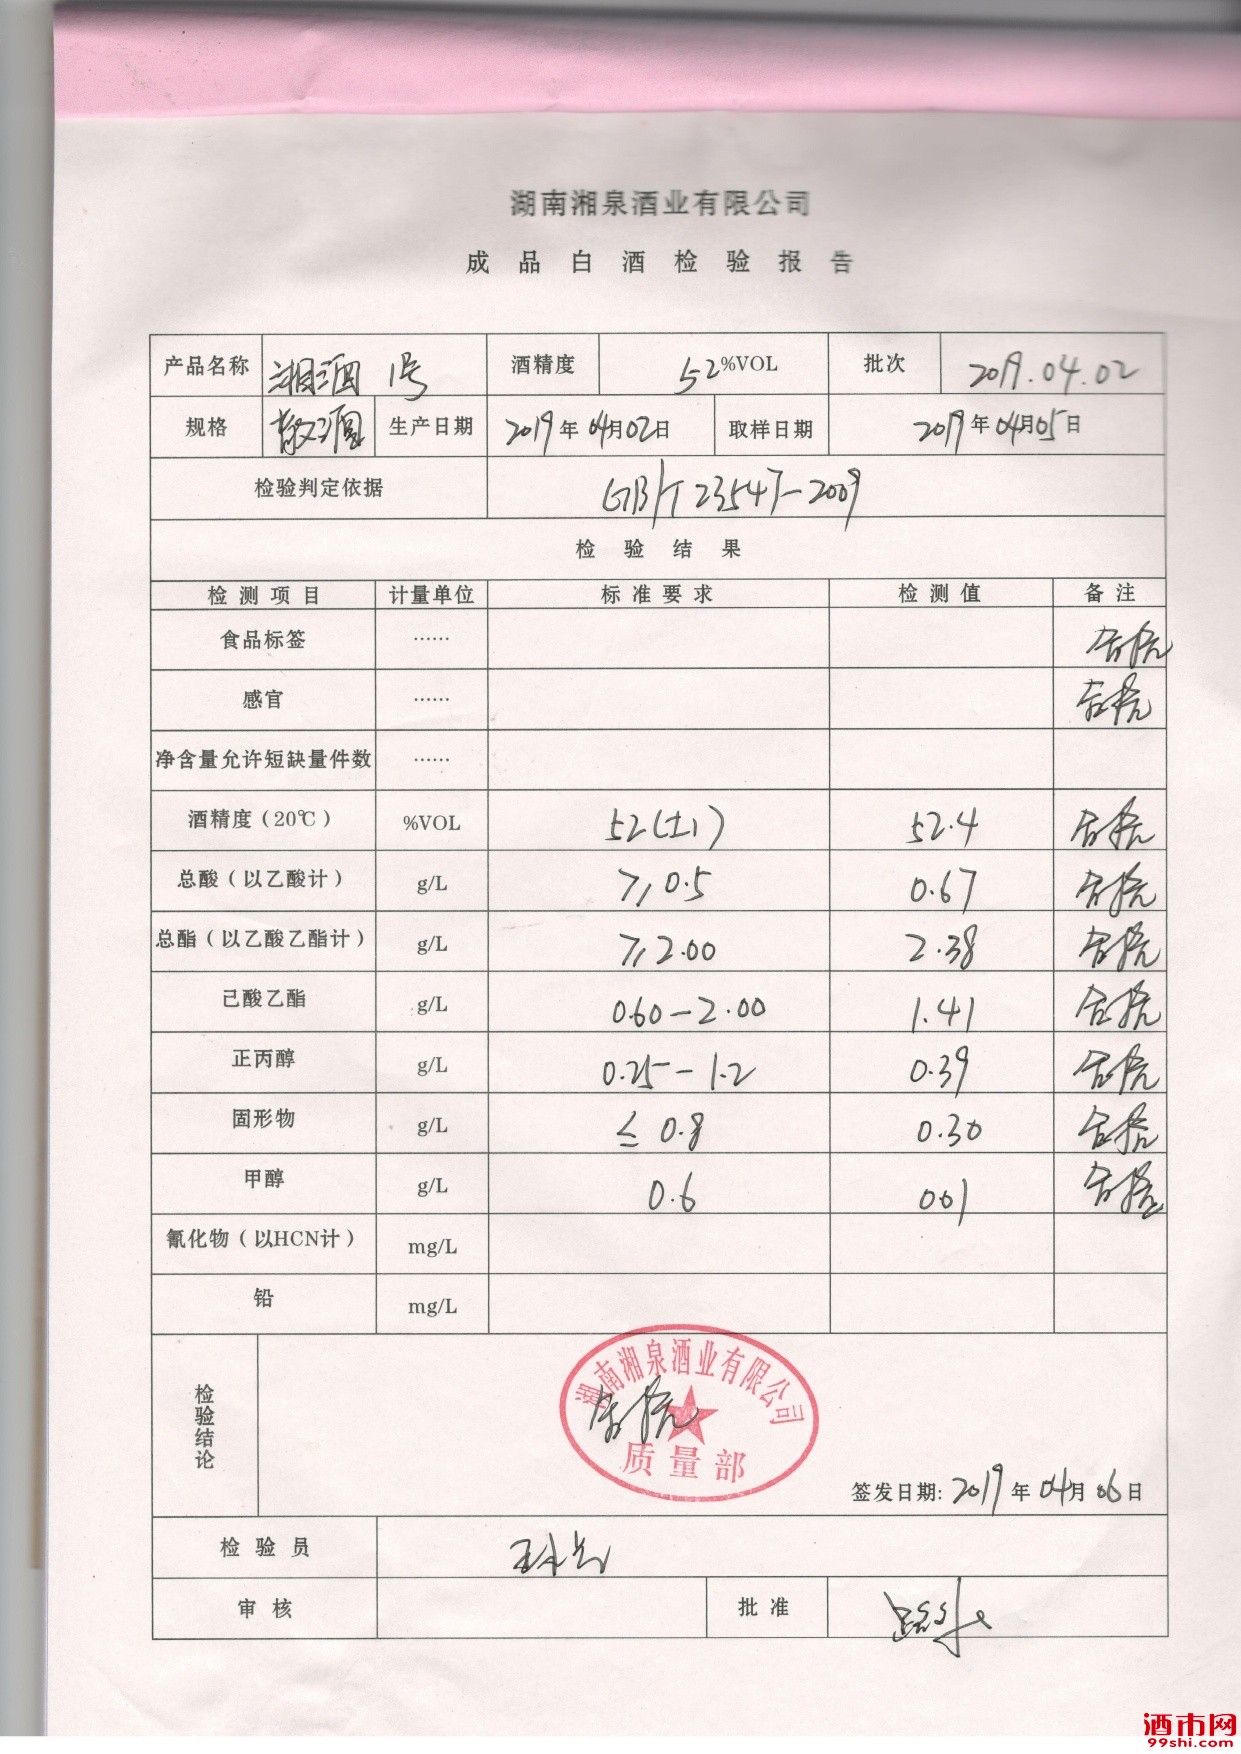 湖南湘泉酒业有限公司
成品白酒检验报告
产品名称 湘酒 1号 酒精度 52%VOL 批次 2019.04.02
规格 散酒 生产日期 2019年04月02日 取样日期 2019年04月05日
检验判定依据 GB/T 23547-2009
检验结果
检测项目 计量单位 标准要求 检测值 备注
食品标签 …… 合格
感官 …… 合格
净含量允许短缺量件数 ……
酒精度(20℃) %VOL 52(±1) 52.4 合格
总酸(以乙酸计) g/L ≥0.5 0.67 合格
总酯(以乙酸乙酯计) g/L ≥2.00 2.38 合格
己酸乙酯 g/L 0.60-2.00 1.41 合格
正丙醇 g/L 0.25-1.2 0.39 合格
固形物 g/L ≤0.8 0.30 合格
甲醇 g/L 0.6 0.01 合格
氰化物(以HCN计) mg/L
铅 mg/L
检验结论 合格
湖南湘泉酒业有限公司
质量部
签发日期: 2019年04月06日
检验员
审核 批准
酒市网
99shi.com